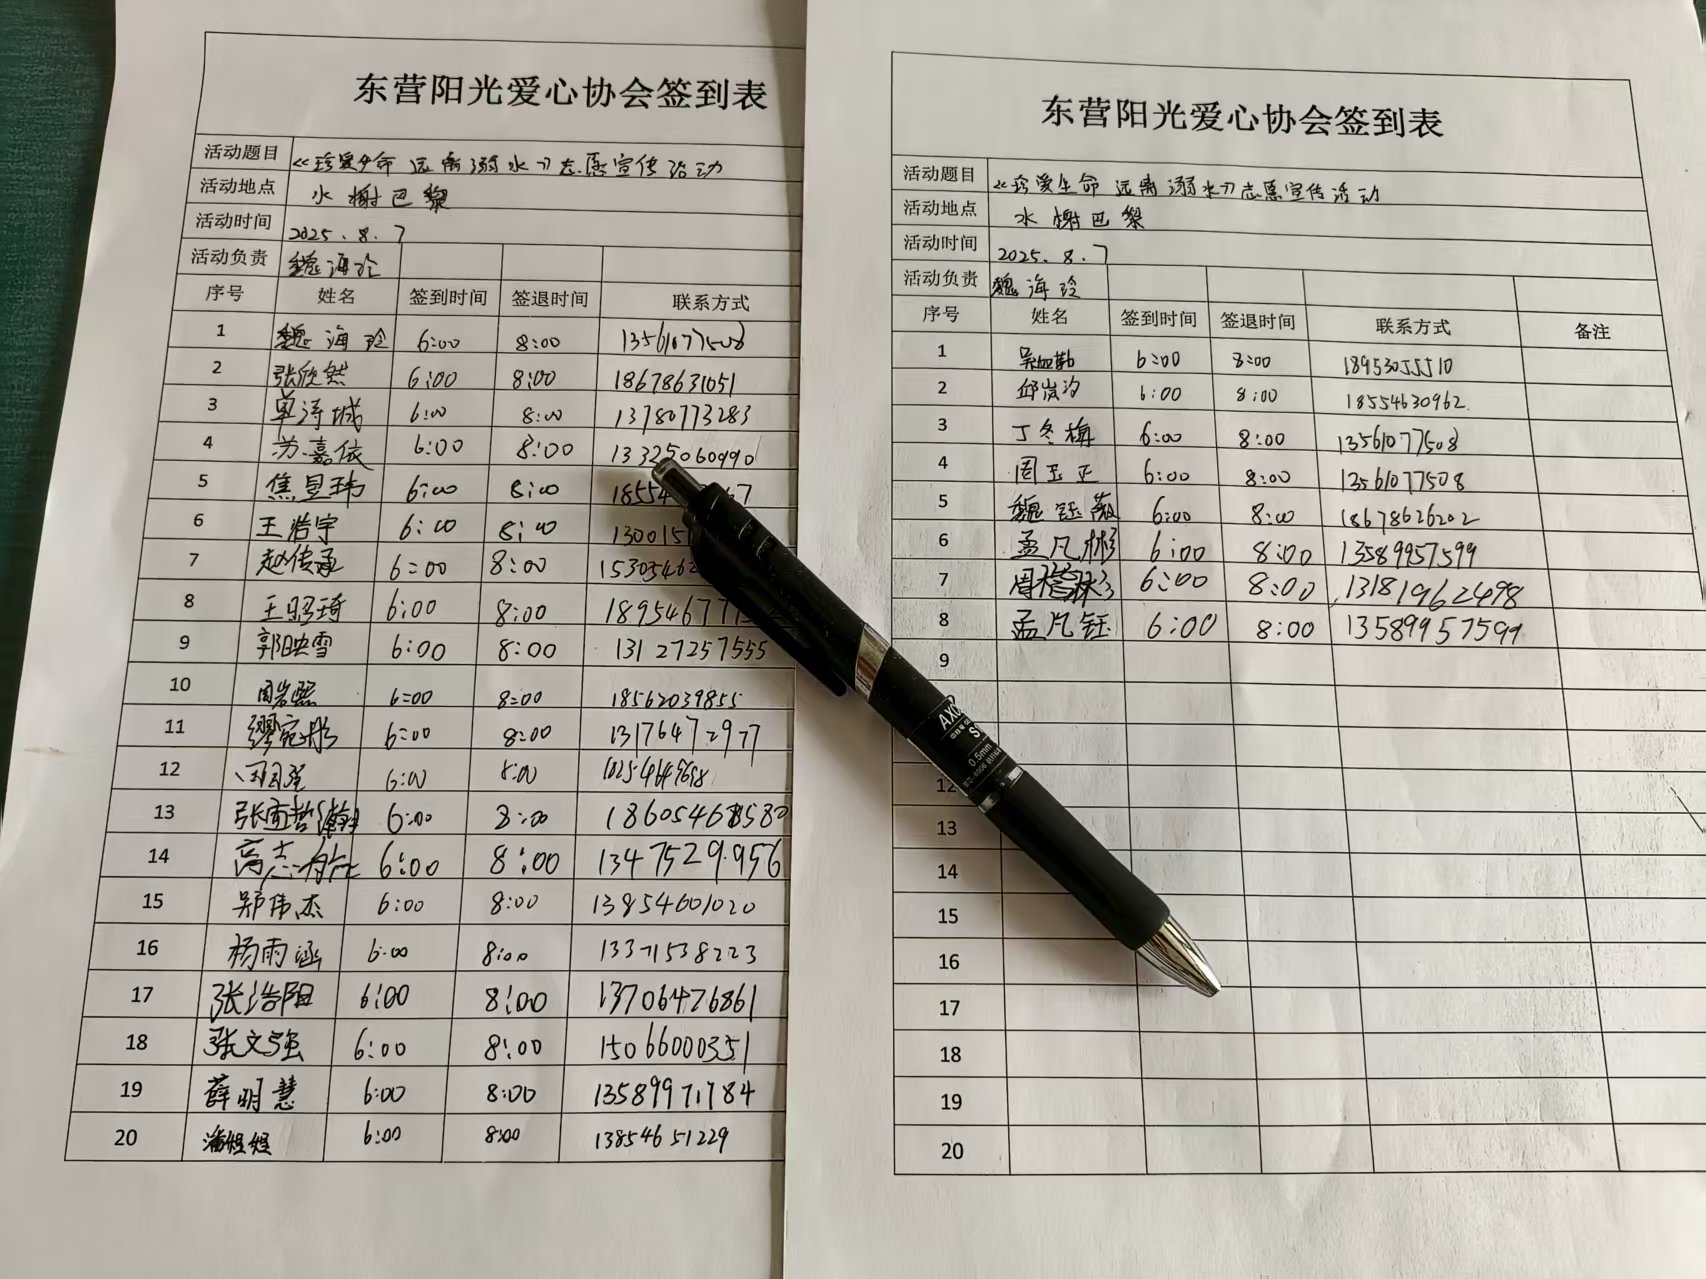 东营阳光爱心协会签到表
活动题目 《珍爱生命 远离溺水》志愿宣传活动
活动地点 水榭巴黎
活动时间 2025.8.7
活动负责 魏海玲
序号 姓名 签到时间 签退时间 联系方式
1 魏海玲 6:00 8:00 13561077508
2 张欣然 6:00 8:00 18678631051
3 单涛城 6:00 8:00 13780773283
4 苏嘉依 6:00 8:00 13325060990
5 焦昱玮 6:00 8:00
6 王浩宇 6:00 8:00
7 赵传承 6:00 8:00
8 王昭琦 6:00 8:00
9 郭映雪 6:00 8:00 13127257555
10 周岩熙 6:00 8:00 18562039855
11 缪宛彤 6:00 8:00 13176472977
12 6:00 8:00
13 6:00 8:00
14 6:00 8:00
15 郑伟杰 6:00 8:00 13854601020
16 杨雨涵 6:00 8:00 13371538223
17 张浩阳 6:00 8:00 13706476861
18 张文强 6:00 8:00 15066000351
19 薛明慧 6:00 8:00 13589971784
20 6:00 8:00 13854651229
东营阳光爱心协会签到表
活动题目 《珍爱生命 远离溺水》志愿宣传活动
活动地点 水榭巴黎
活动时间 2025.8.7
活动负责 魏海玲
序号 姓名 签到时间 签退时间 联系方式 备注
1 6:00 8:00 18953055510
2 邱岚汐 6:00 8:00 18554630962
3 丁冬梅 6:00 8:00 13561077508
4 周玉正 6:00 8:00 13561077508
5 魏钰薇 6:00 8:00 18678626202
6 孟凡彬 6:00 8:00 13589957599
7 6:00 8:00 13181962498
8 孟凡钰 6:00 8:00 13589957599
9
12
13
14
15
16
17
18
19
20
0.5mm